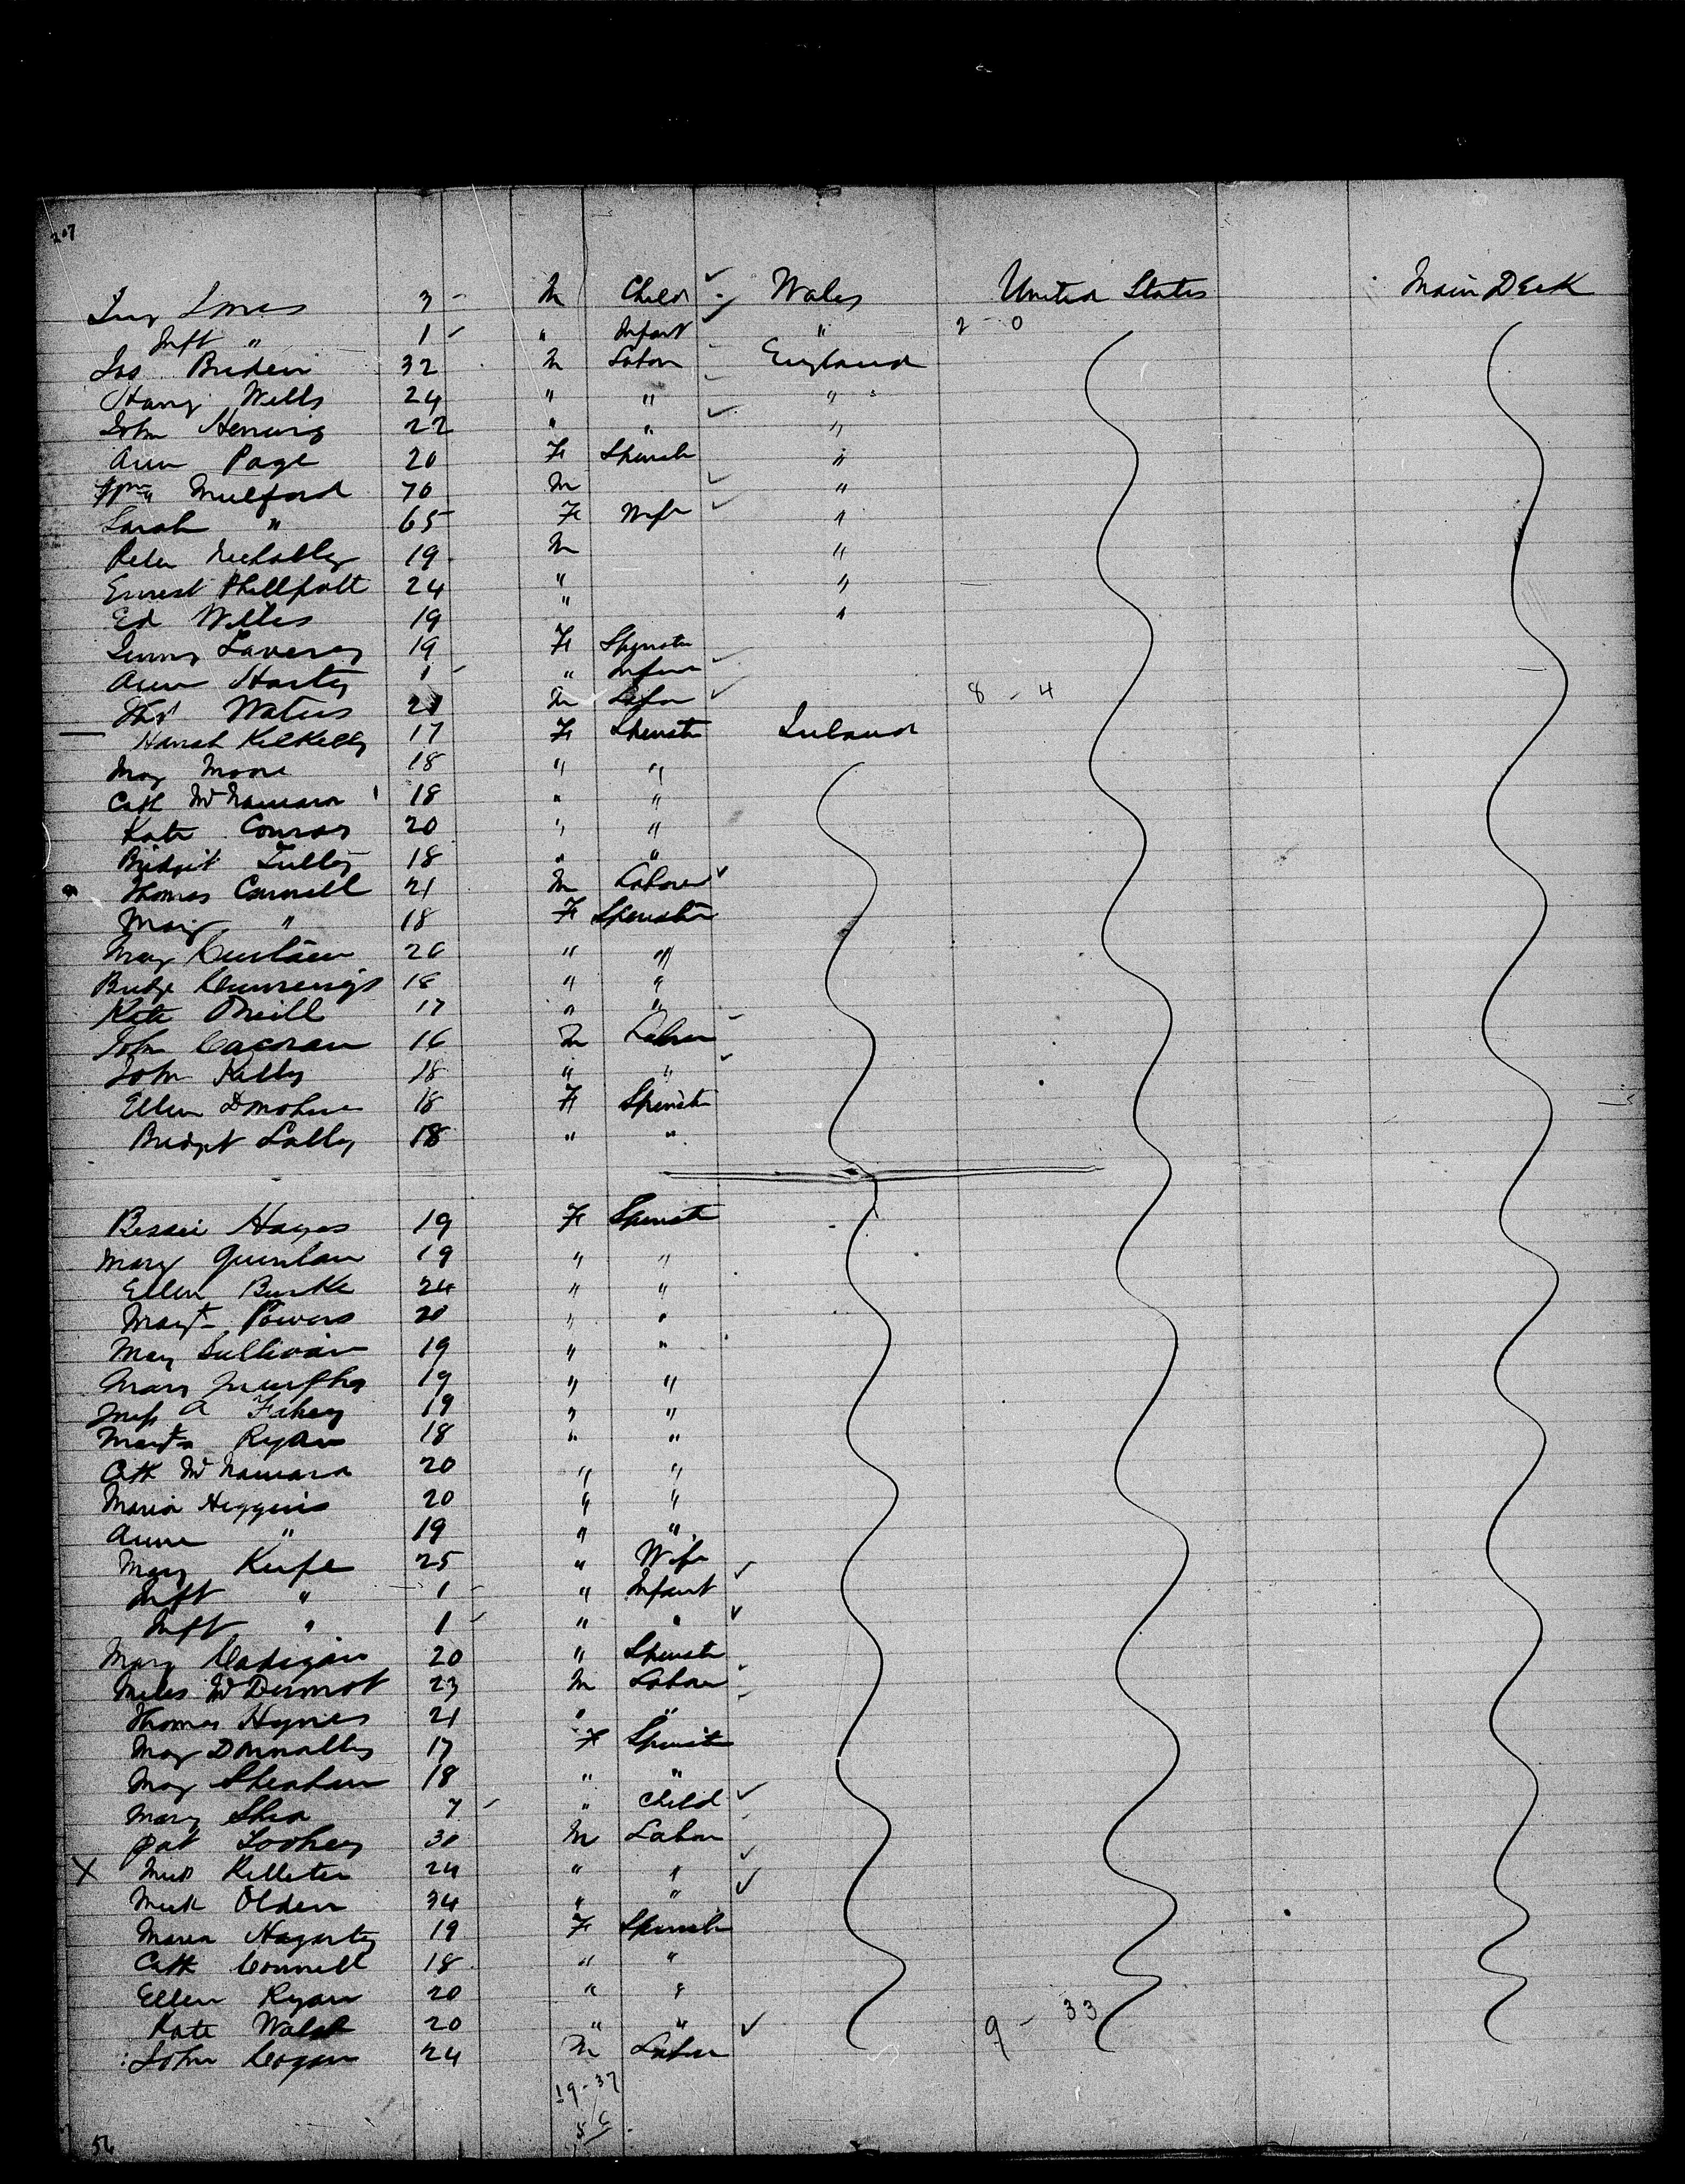 207
3 - M Child Wales United States Main Deck
Inft " 1 - " Infant " 2 - 0
Jos Briden 32 M Labor England
Harry Wills 24 " " "
John Henwig 22 " " "
Ann Page 20 F Spinster "
Wm Mulford 70 M "
Sarah " 65 F Wife "
Peter 19 M "
Ernest Phillpott 24 " "
Ed Willis 19 " "
Laverey 19 F Spinster
Ann Harty 1 - " Infan
Thos Waters 21 M Labor 8 - 4
Hanah Kilkelly 17 F Spinster Ireland
May Moore 18 " "
Cath McNamara 18 " "
Kate Conroy 20 " "
Bridgit Tully 18 " "
Thomas Connell 21 M Laborer
Mary " 18 F Spinster
May 26 " "
Bridg Cummings 18 " "
Kate ONeill 17 " "
John Cacoran 16 M Laborer
John Kelly 18 " "
Ellen Donohue 18 F Spinster
Bridget Lally 18 " "
Bessie Hayes 19 F Spinster
Mary Quinlan 19 " "
Ellen Burke 24 " "
Margt Powers 20 " "
May Sullivan 19 " "
Mary 19 " "
Miss A Fahey 19 " "
Margt Ryan 18 " "
Cath McNamara 20 " "
Maria Higgins 20 " "
Anne " 19 " "
Mary Keife 25 " Wife
Inft " 1 - " Infant
Inft " 1 - " "
Mary Cadigan 20 " Spinster
Miles McDermot 23 M Labore
Thomas Hynes 21 " "
May Donnally 17 F Spinster
May Sheahan 18 " "
Mary Shea 7 - " Child
Pat Toohey 30 M Labor
X Mich Relleter 24 " "
Mich Olden 34 " "
Maria Hagarty 19 F Spinster
Cath Connell 18 " "
Ellen Ryan 20 " "
Kate Walsh 20 " " 9 - 33
John Cogan 24 M Labor
19 - 37
56
56